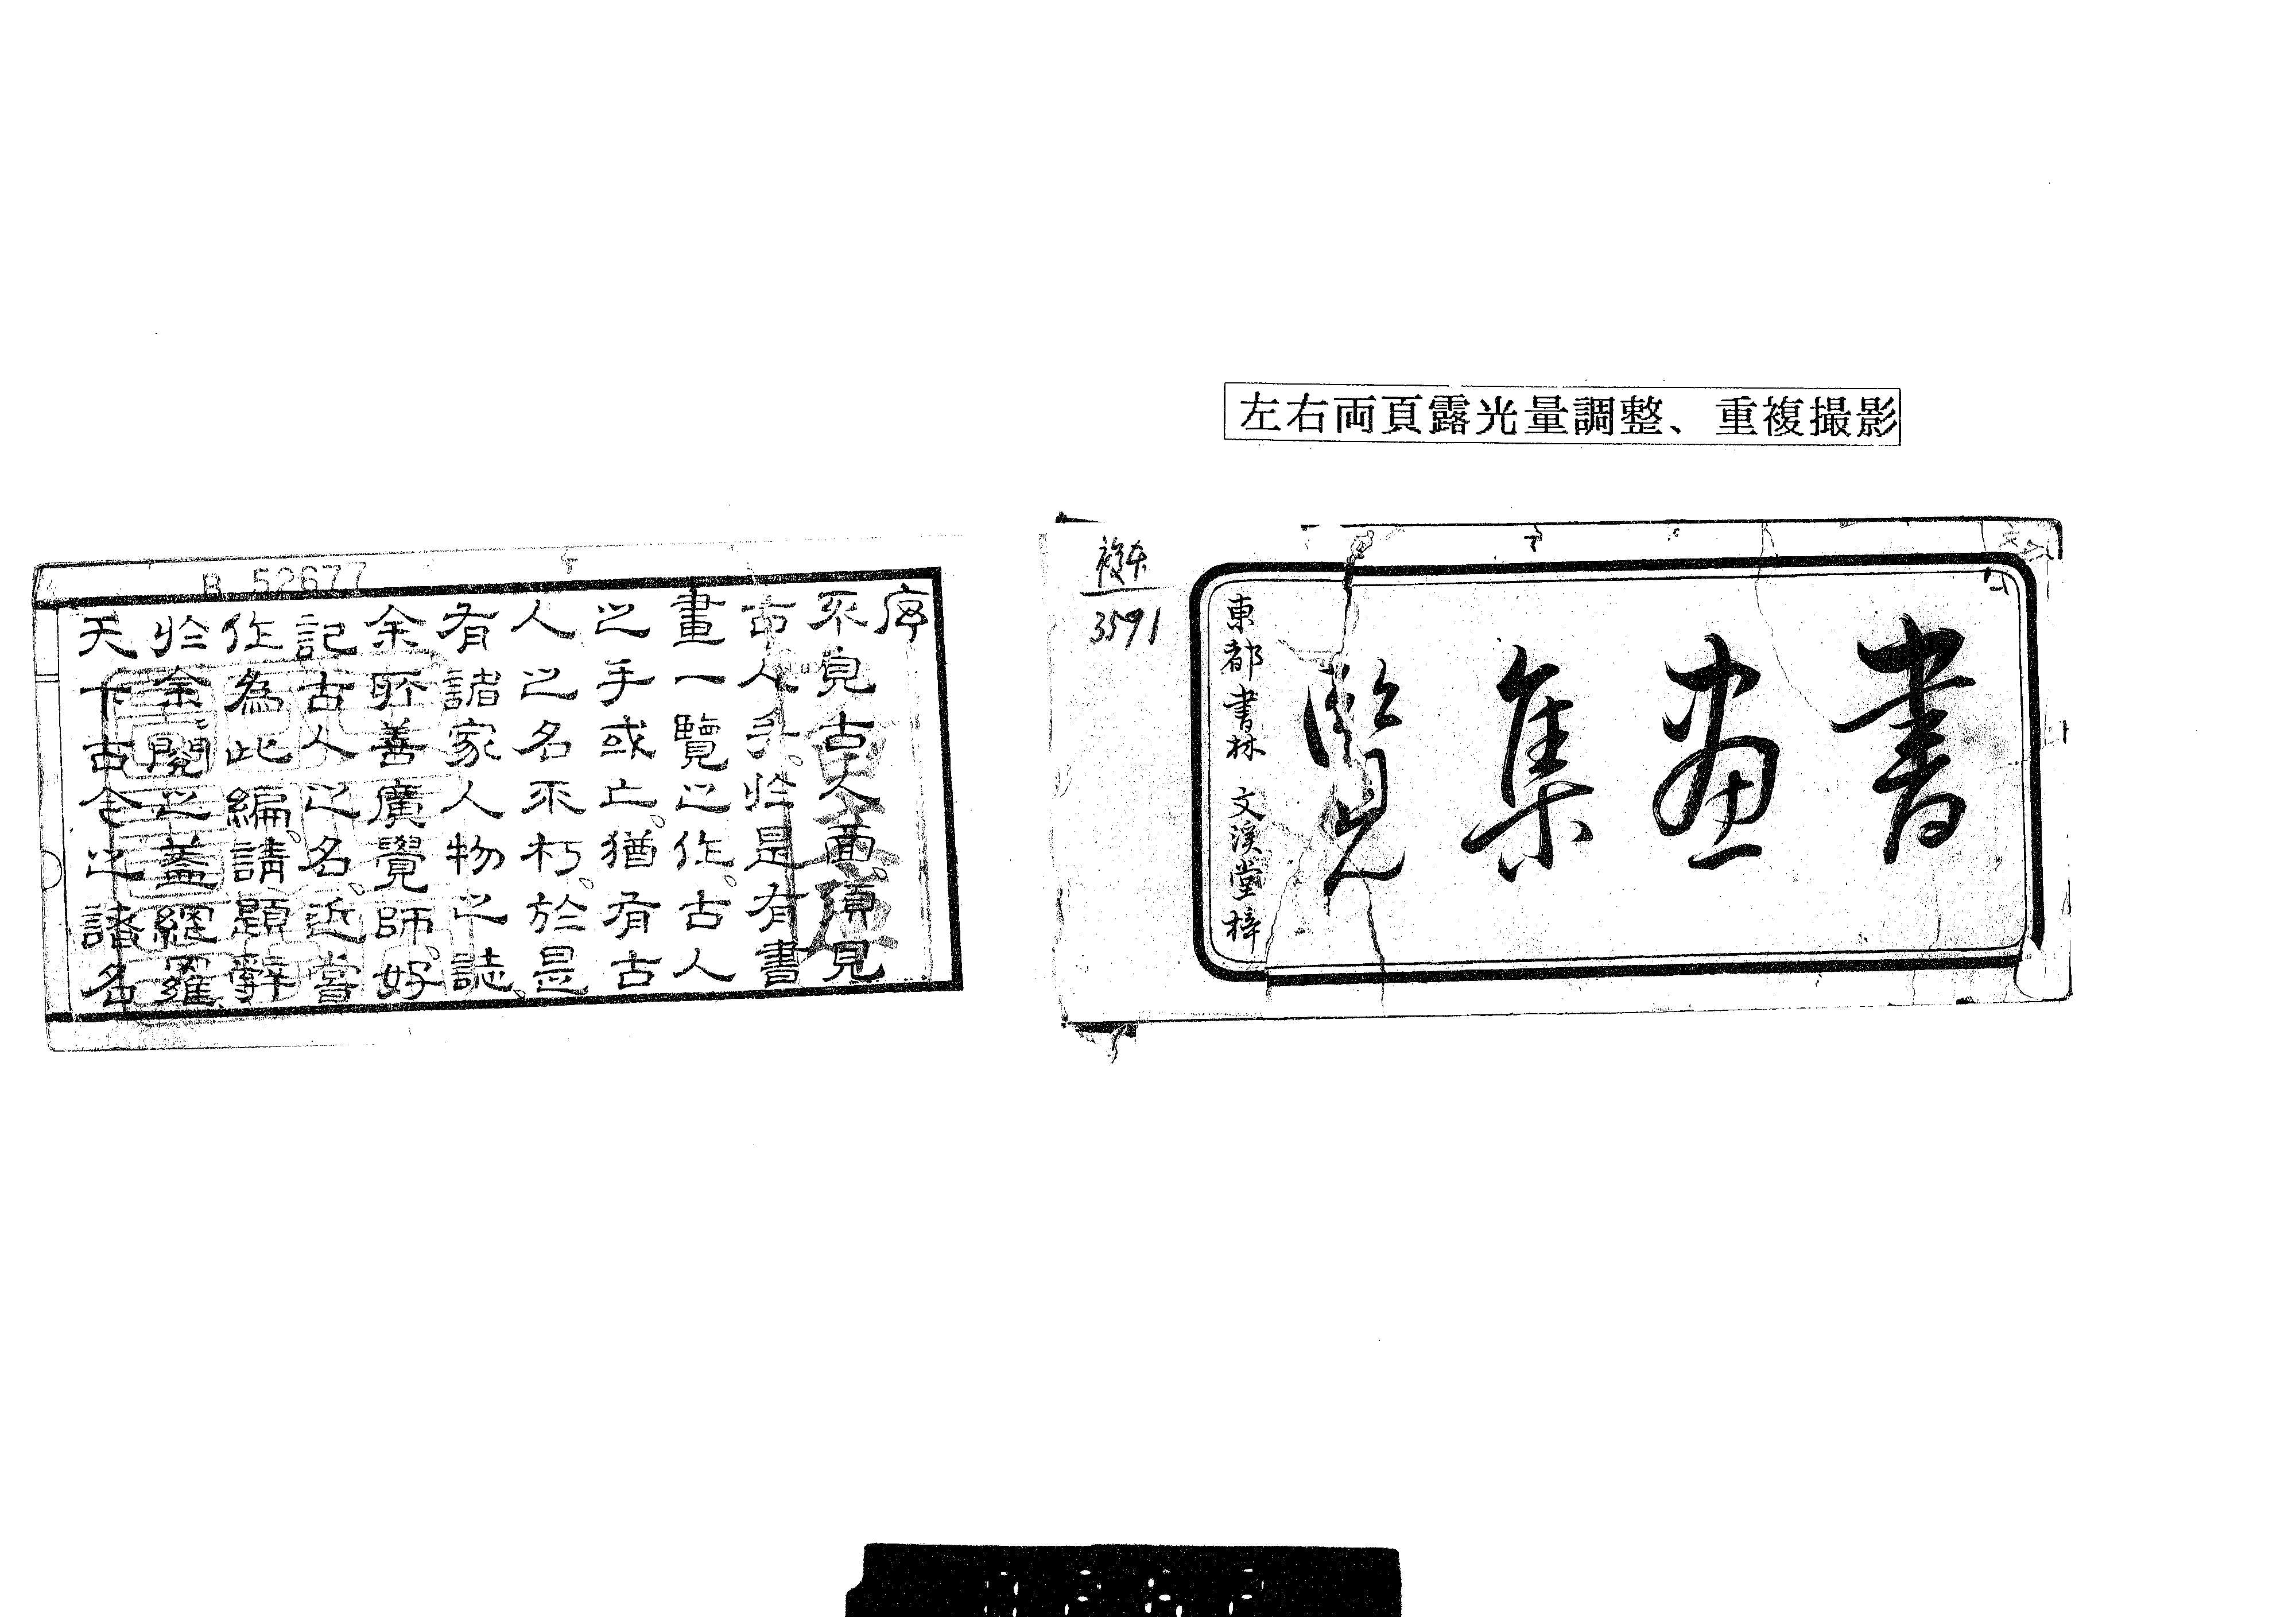 左右両頁露光量調整、重複撮影
複本
3591
書画集覽
東都書林 文溪堂梓
B 52677
序
不見古人面。須見
古人手。於是有書
畫一覽之作。古人
之手或亡。猶有古
人之名不朽。於是
有諸家人物之誌。
余所善廣覺師。好
記古人之名。近嘗
作為此編。請題辭
於余。閱之蓋網羅
天下古今之諸名